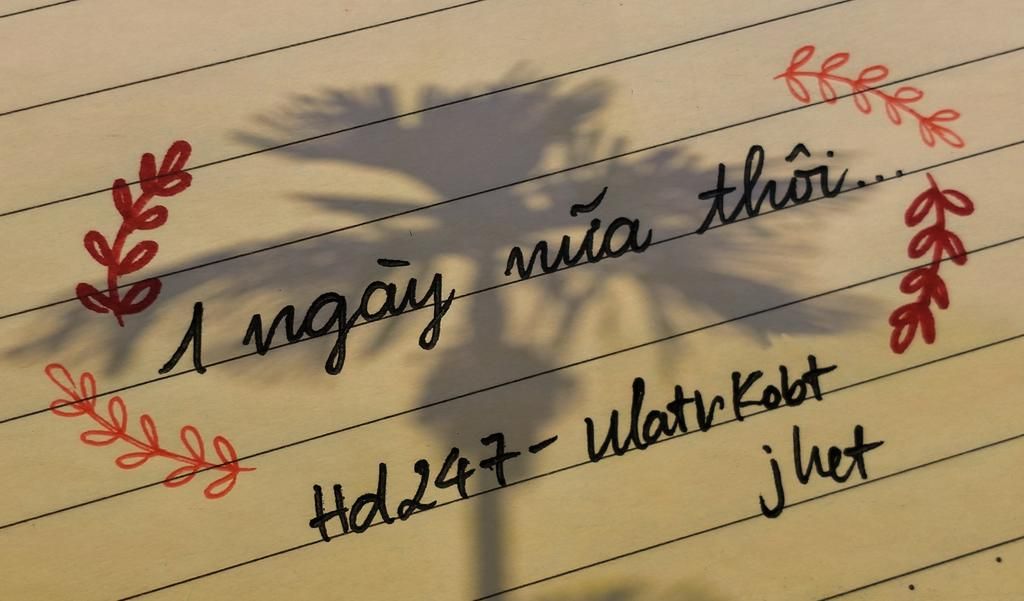 1 ngày nữa thôi...
Hd247- UlatrKobt
jhet